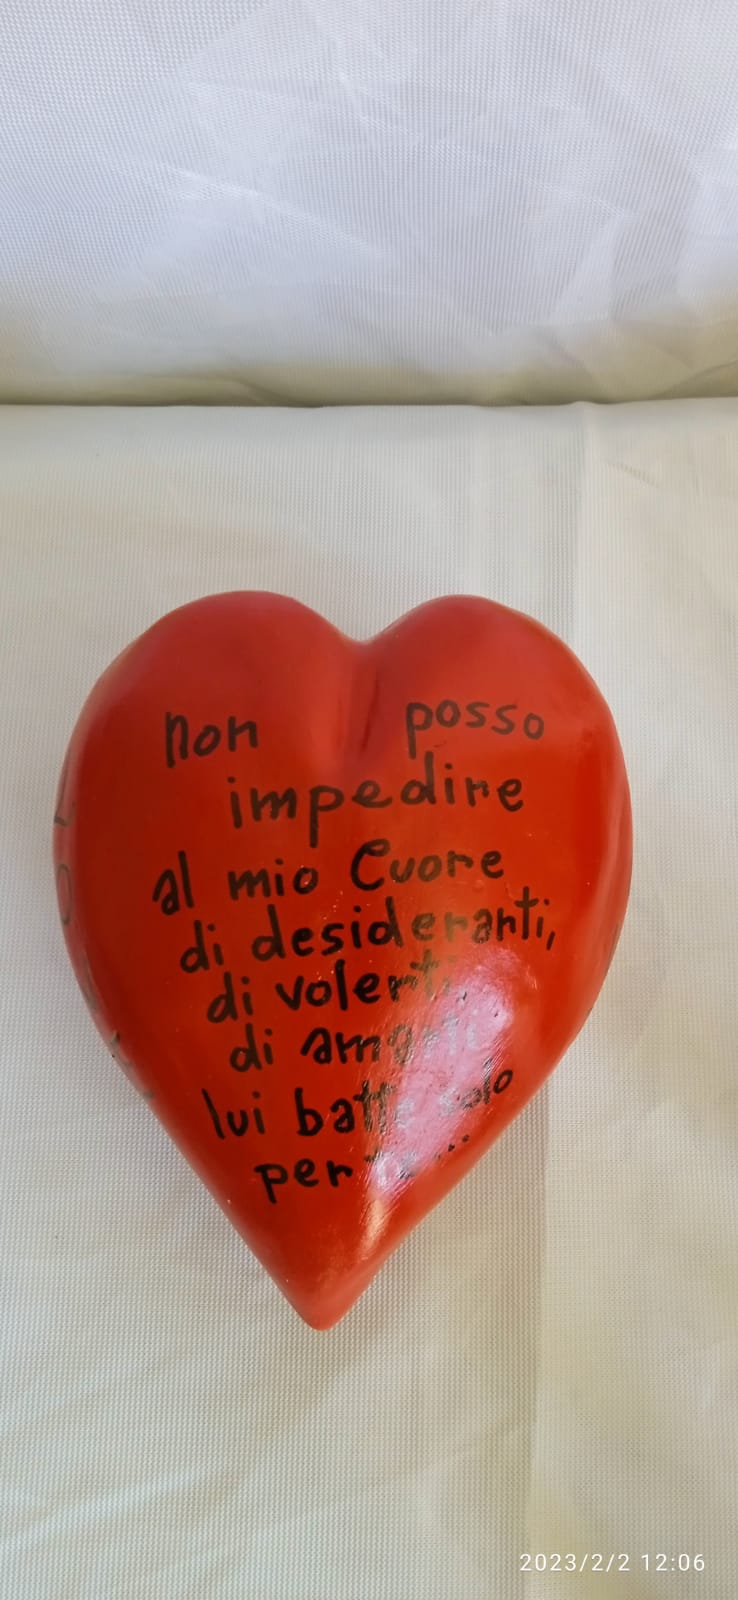 non posso
impedire
al mio Cuore
di desiderarti,
di volerti,
di amarti
lui batte solo
per te...
2023/2/2 12:06